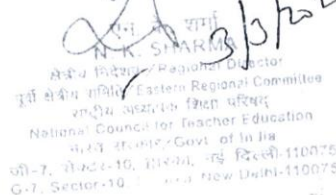 3/3/202
एन. के. शर्मा
N. K. SHARMA
क्षेत्रीय निदेशक / Regional Director
पूर्वी क्षेत्रीय समिति / Eastern Regional Committee
राष्ट्रीय अध्यापक शिक्षा परिषद्
National Council for Teacher Education
भारत सरकार / Govt. of India
जी-7, सेक्टर-10, द्वारका, नई दिल्ली-110075
G-7, Sector-10 New Delhi-110075